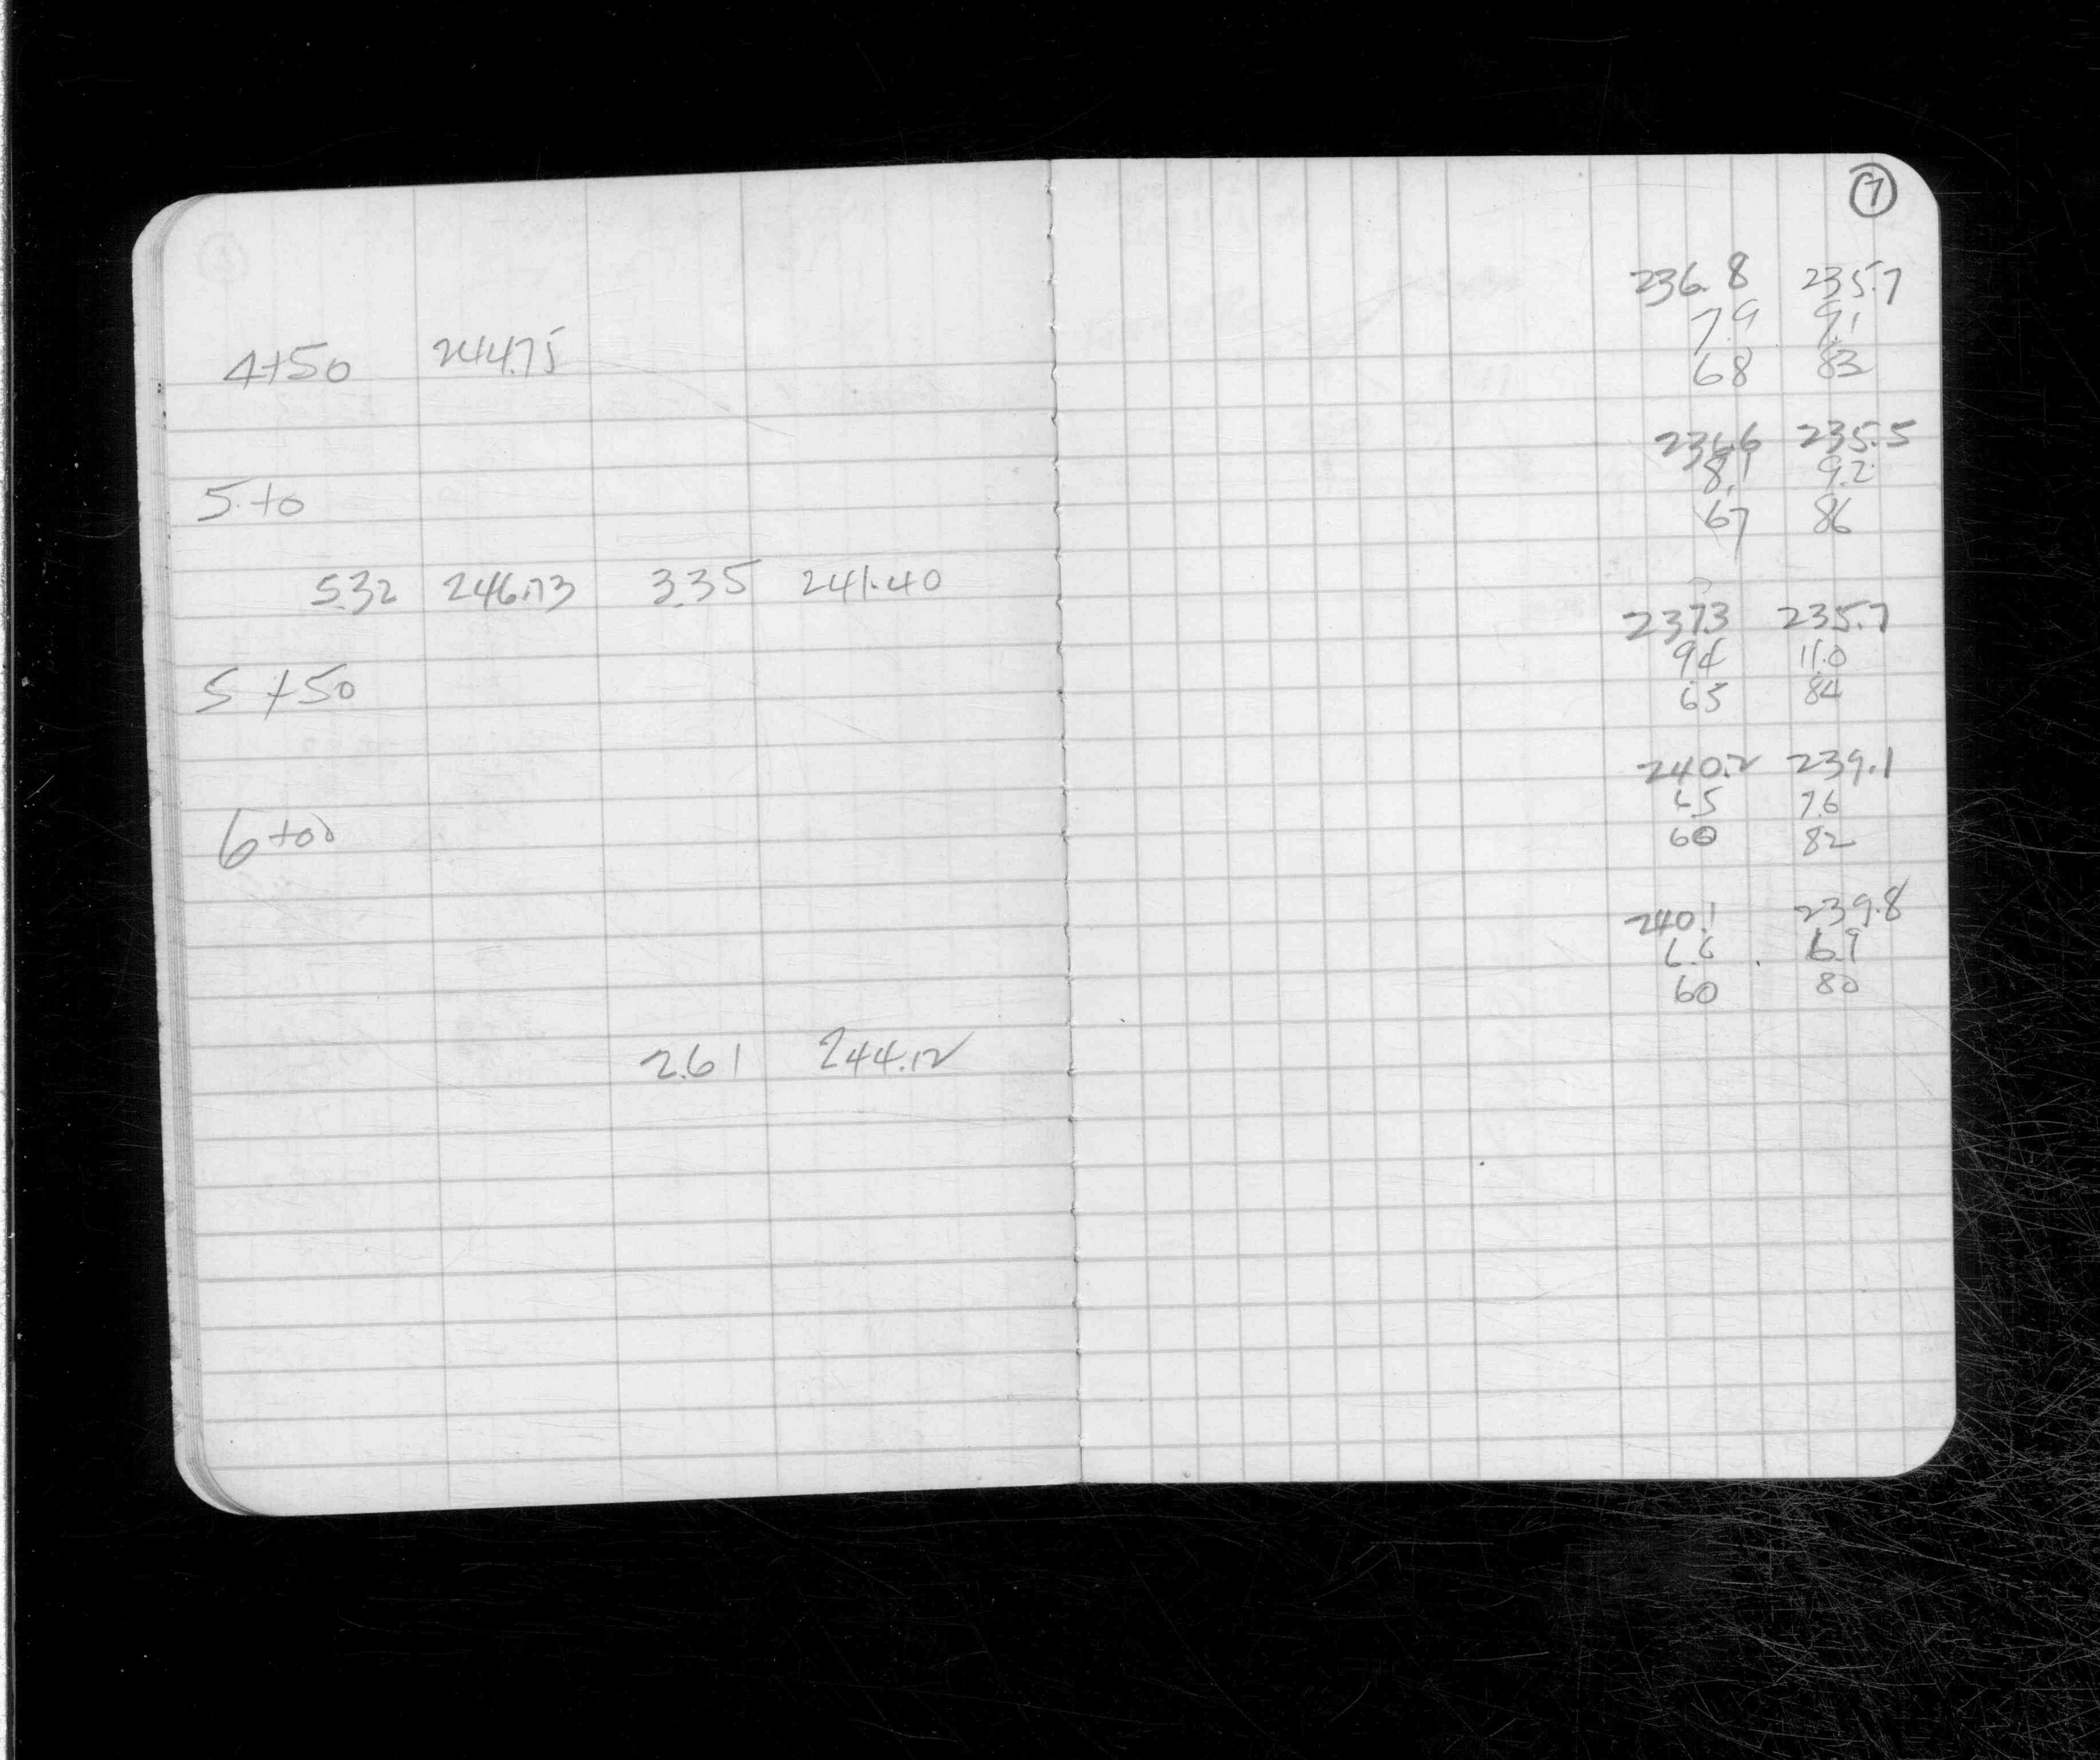 7
4+50 244.75
5+0
5.32 246.73 3.35 241.40
5+50
6+00
2.61 244.12
236.8 235.7
7.9 9.1
68 83
236.6 235.5
8.1 9.2
67 86
237.3 235.7
94 11.0
65 84
240.2 239.1
6.5 7.6
60 82
240.1 239.8
6.6 6.9
60 80